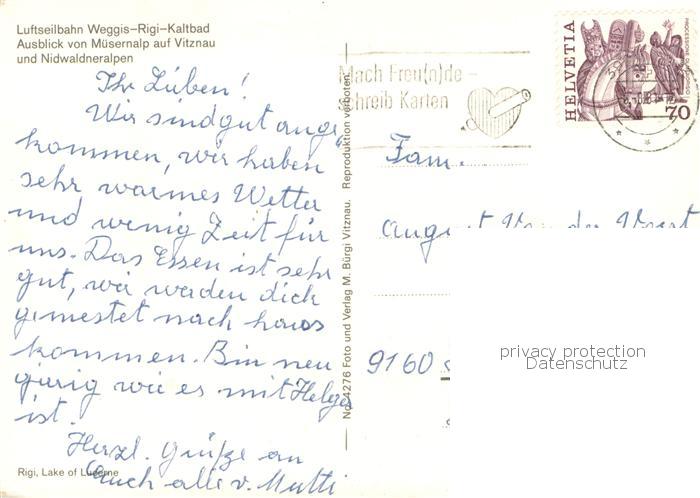 Luftseilbahn Weggis–Rigi–Kaltbad
Ausblick von Müsernalp auf Vitznau
und Nidwaldneralpen
Ihr Lieben!
Wir sind gut ange
kommen, wir haben
sehr warmes Wetter
und wenig Zeit für
uns. Das Essen ist sehr
gut, wir werden dich
gemestet nach haus
kommen. Bin neu
gierig wie es mit Helga
ist.
Herzl. Grüße an
Euch alle v. Mutti
Rigi, Lake of Lucerne
No. 4276 Foto und Verlag M. Bürgi Vitznau. Reproduktion verboten.
Mach Freu(n)de –
schreib Karten
HELVETIA
70
Fam.
August Van der
9160
privacy protection
Datenschutz